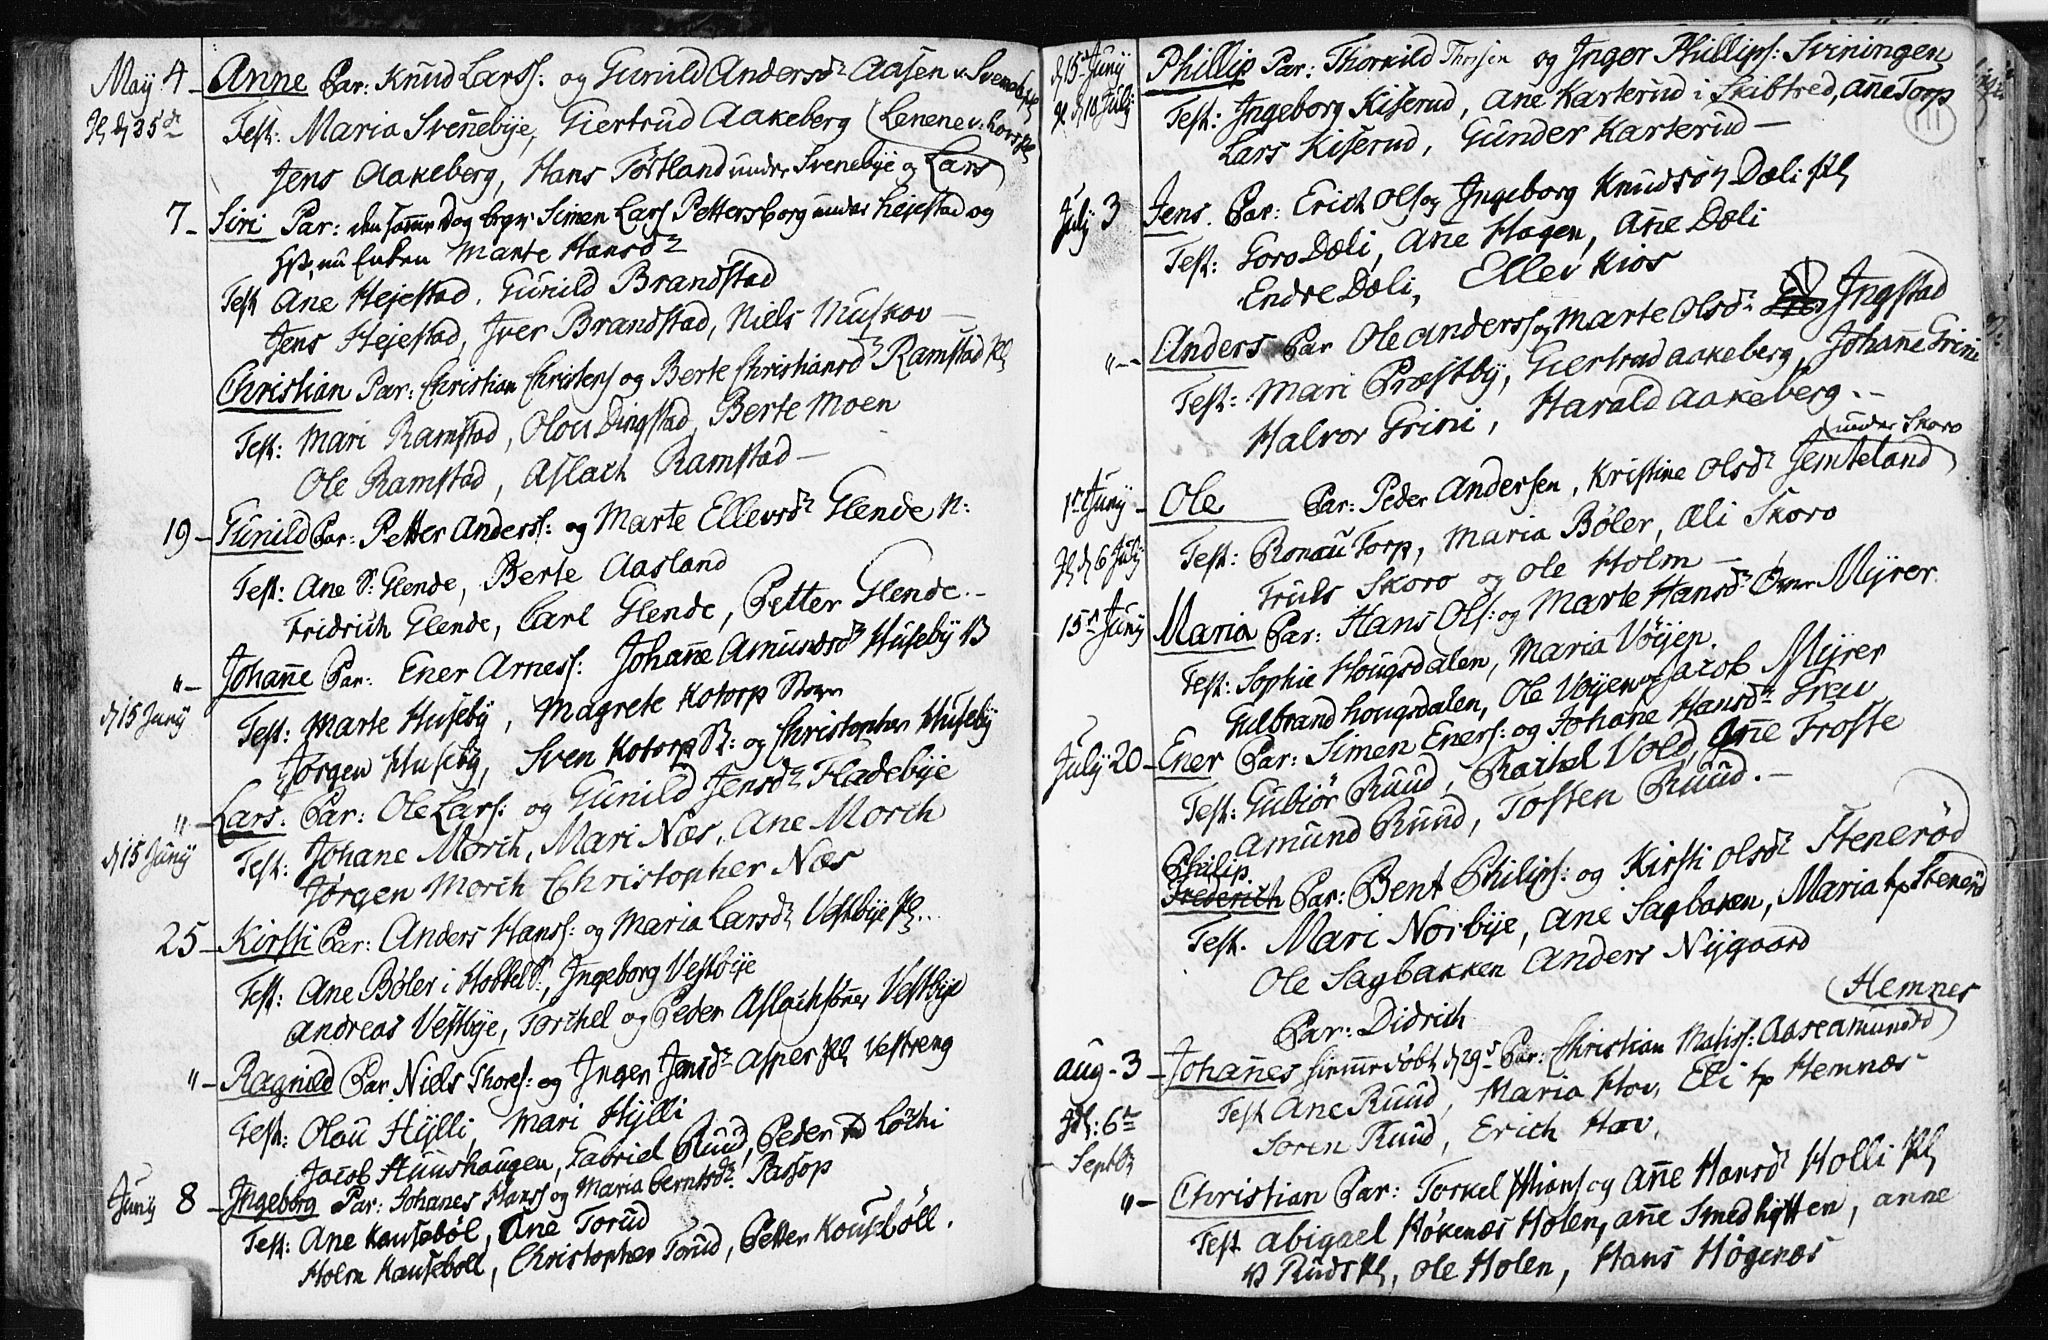 May 4 – Anne Par: Knud Larss: og Gunild Andersdr Aasen
Test: Maria Svenebÿe, Giertrud Aakeberg (Lenene
Jens Aakeberg, Hans Tortland under Svenebÿe og Lars)
7 – Siri Par: den samme Dag begr: Simen Lars Pettersborg under Hejestad og
nu Enken Marte Hansdr
Test Ane Hejestad, Gunild Brandstad
Jens Hejestad, Iver Brandstad, Niels Muskov –
Christian Par: Christian Christens og Berte Christiansdr Ramstad
Test: Mari Ramstad, Olou Dingstad, Berte Moen
Ole Ramstad, Aslach Ramstad –
19 – Gunild Par: Petter Anderss: og Marte Ellevsdr Glende N:
Test: Ane S: Glende, Berte Aasland
Fridrich Glende, Carl Glende, Petter Glende. –
" – Johan̄e Par: Ener Arness: Johan̄e Amundsdr Husebÿ
d 15 Junÿ
Test: Marte Husebÿ, Magrete Kotorp
Jørgen Husebÿ, Sven Kotorp og Christopher Husebÿ
" – Lars. Par: Ole Lars: og Gunild Jensdr Fladebÿe
d 15 Junÿ
Test: Johane Morch, Mari Næs, Ane Morch
Jørgen Morch Christopher Næs
25 – Kirsti Par: Anders Hanss: og Maria Larsdr Vestbÿe
Test: Ane Bøler i Hobbel S:, Ingeborg Vestbÿe
Andreas Vestbÿe, Torchel og Peder Aslachsønner Vestbÿe
" – Ragnild Par. Niels Thores: og Inger Jensdr Asper Vestreng
Test: Olou Hÿlli, Mari Hÿlli
Jacob Huushaugen, Gabriel Ruud, Peder Løchi
Junÿ 8 – Ingeborg Par: Johanes Hans og Maria Berntsdr Passop
Test: Ane Kausebøl, Ane Torud
Holm Kausebøll, Christopher Torud, Petter Kousebøll.
111
d 15 Junÿ
Phillip Par: Thorkild og Inger Phillips: Sviningen
d 18 Julÿ
Test: Ingeborg Kiserud, Ane Karterud i Skibtved, An̄e Torp
Lars Kiserud, Gunder Karterud –
Julÿ 3 Jens. Par: Erich Ols og Ingeborg Knudsdr Dæli
Test: Goro Dæli, An̄e Hagen, An̄e Dæli
Endre Dæli, Ellev Kios
" – Anders Par Ole Anderss og Marte Olsdr Ingstad
Test: Mari Præstbÿ, Giertrud Aakeberg, Johan̄e Grini
Halvor Grini, Harald Aakeberg. –
under Skoro
1st Junÿ – Ole Par: Peder Andersen, Kristine Olsdr Jemteland
d 6 Julÿ
Test: Ronau Torp, Maria Bøler, Æli Skoro
Truls Skoro og Ole Holm –
15 Junÿ Maria Par: Hans Ols: og Marte Hansdr Mÿrer
Test: Sophie Hougsdalen, Maria Vøÿen.
Gulbrand Hougsdalen, Ole Vøÿen og Jacob Mÿrer
Julÿ 20 – Ener Par: Simen Eners: og Johane Hansdr Greu
Test: Gubiør Ruud, Rachel Vold, An̄e Froste
Amund Ruud, Tosten Ruud. –
Philip
Frederich Par: Bent Philips: og Kirsti Olsdr Stenerød
Test. Mari Norbÿe, Ane Sagbaken, Maria Stenerød
Ole Sagbakken Anders Nÿgaard
Par: Didrich
Hemnes
Aug – 3 – Johan̄es hiemmedøbt d 29 Par: Christian Matiss: Aase Amundsd
6te
Septbr
Test Ane Ruud, Maria Hov, Eli Hemnæs
Søren Ruud, Erich Hov,
" – Christian Par: Torkel og An̄e Hansdr Holli
Test Abigael Høkenæs Holen, An̄e Smedhÿtten, Anne
Ruds, Ole Holen, Hans Høgenæs